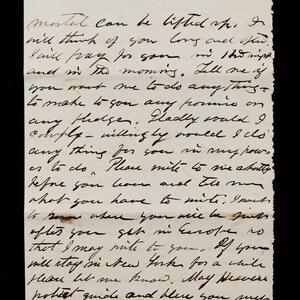 mortal can be lifted up. I
will think of you long and often
I will pray for you in the night
and in the morning. Tell me if
you want me to do anything -
to make to you any promise or
any pledges. Gladly would I
comply - willingly would I do
any thing for you in my power
to do. Please write to me
before you leave and tell me
what you have to write. I want
to know where you will be
after you get in Europe so
that I may write to you. If you
will stay in New York for a while
please let me know. May Heaven
protect guide and bless you